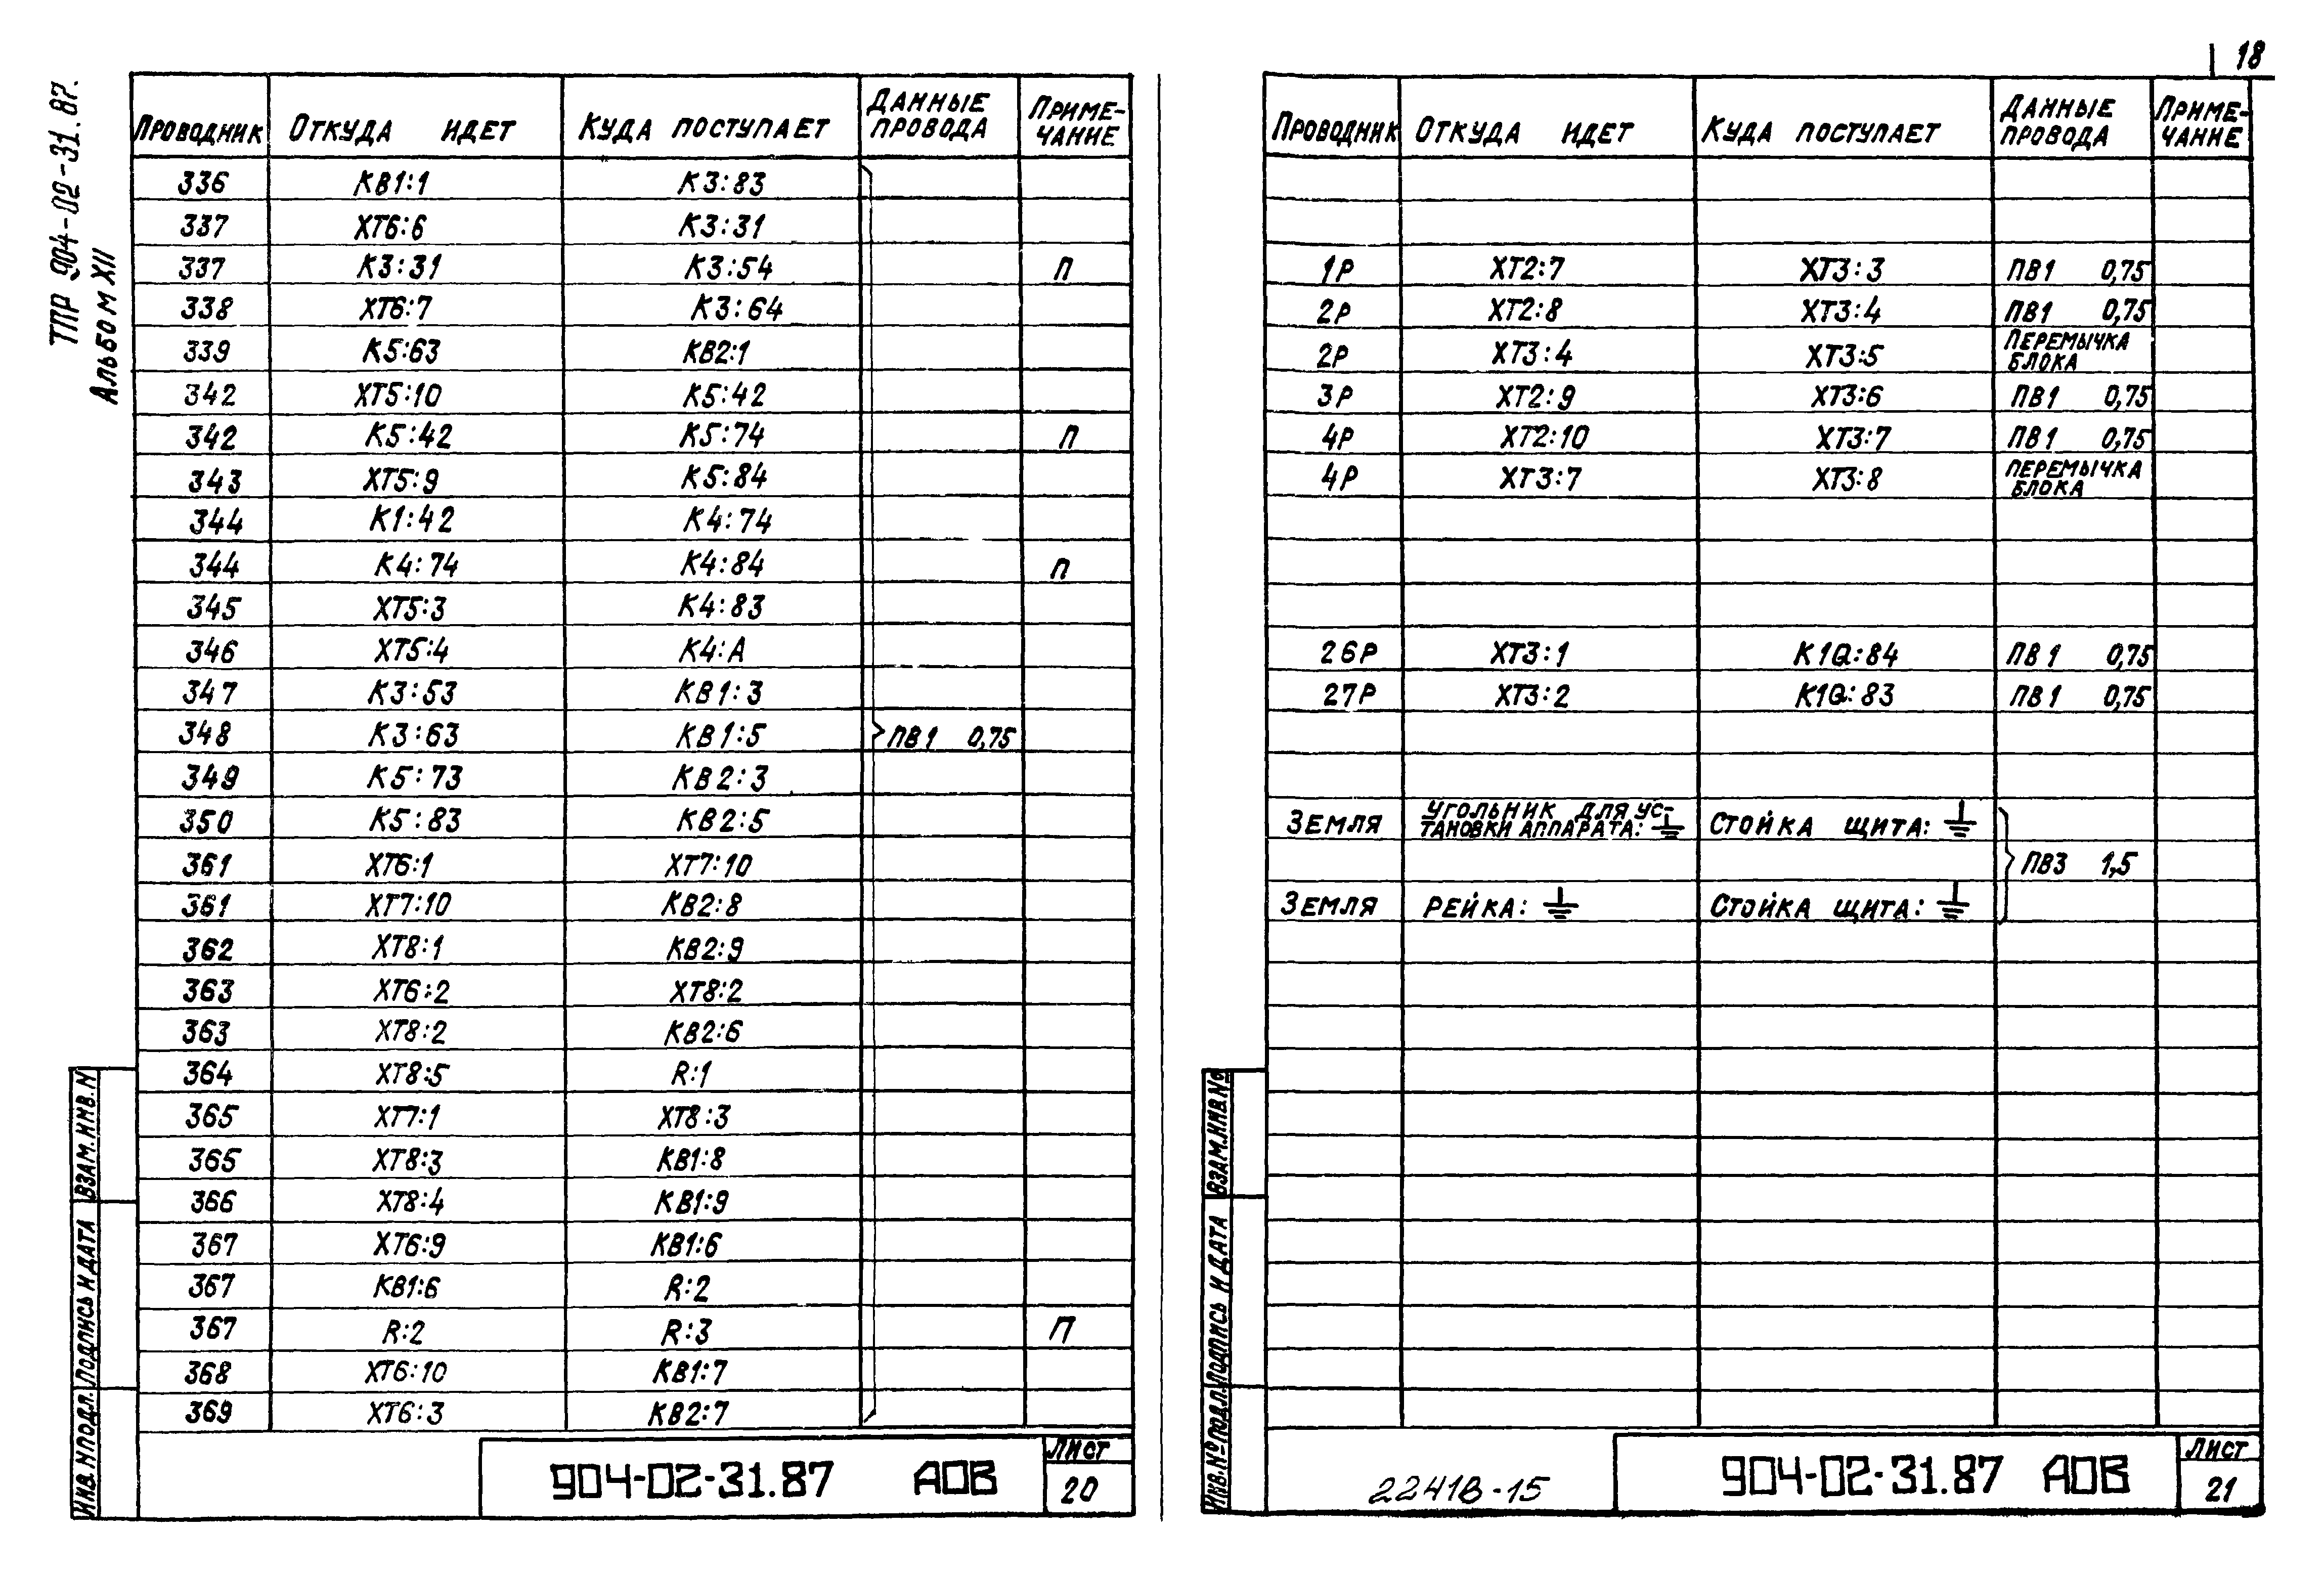 ТПР 904-02-31.87.
Альбом XII
Проводник Откуда идет Куда поступает Данные провода Примечание
336 КВ1:1 К3:83
337 ХТ6:6 К3:31
337 К3:31 К3:54 П
338 ХТ6:7 К3:64
339 К5:63 КВ2:1
342 ХТ5:10 К5:42
342 К5:42 К5:74 П
343 ХТ5:9 К5:84
344 К1:42 К4:74
344 К4:74 К4:84 П
345 ХТ5:3 К4:83
346 ХТ5:4 К4:А
347 К3:53 КВ1:3
348 К3:63 КВ1:5 ПВ1 0,75
349 К5:73 КВ2:3
350 К5:83 КВ2:5
361 ХТ6:1 ХТ7:10
361 ХТ7:10 КВ2:8
362 ХТ8:1 КВ2:9
363 ХТ6:2 ХТ8:2
363 ХТ8:2 КВ2:6
364 ХТ8:5 R:1
365 ХТ7:1 ХТ8:3
365 ХТ8:3 КВ1:8
366 ХТ8:4 КВ1:9
367 ХТ6:9 КВ1:6
367 КВ1:6 R:2
367 R:2 R:3 П
368 ХТ6:10 КВ1:7
369 ХТ6:3 КВ2:7
904-02-31.87 АОВ
Лист
20
Инв.N подл. Подпись и дата Взам.инв.N
18
Проводник Откуда идет Куда поступает Данные провода Примечание
1Р ХТ2:7 ХТ3:3 ПВ1 0,75
2Р ХТ2:8 ХТ3:4 ПВ1 0,75
2Р ХТ3:4 ХТ3:5 Перемычка блока
3Р ХТ2:9 ХТ3:6 ПВ1 0,75
4Р ХТ2:10 ХТ3:7 ПВ1 0,75
4Р ХТ3:7 ХТ3:8 Перемычка блока
26Р ХТ3:1 К1Q:84 ПВ1 0,75
27Р ХТ3:2 К1Q:83 ПВ1 0,75
Земля Угольник для установки аппарата: ⏚ Стойка щита: ⏚
ПВ3 1,5
Земля Рейка: ⏚ Стойка щита: ⏚
22418-15
904-02-31.87 АОВ
Лист
21
Инв.№ подл. Подпись и дата Взам.инв.№